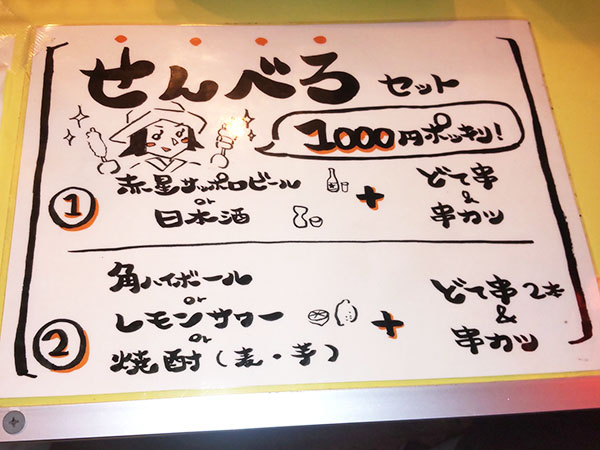 せんべろ セット
1000円ポッキリ!
① 赤星サッポロビール
or
日本酒
+
どて串
&
串カツ
② 角ハイボール
or
レモンサワー
or
焼酎(麦・芋)
+
どて串2本
&
串カツ